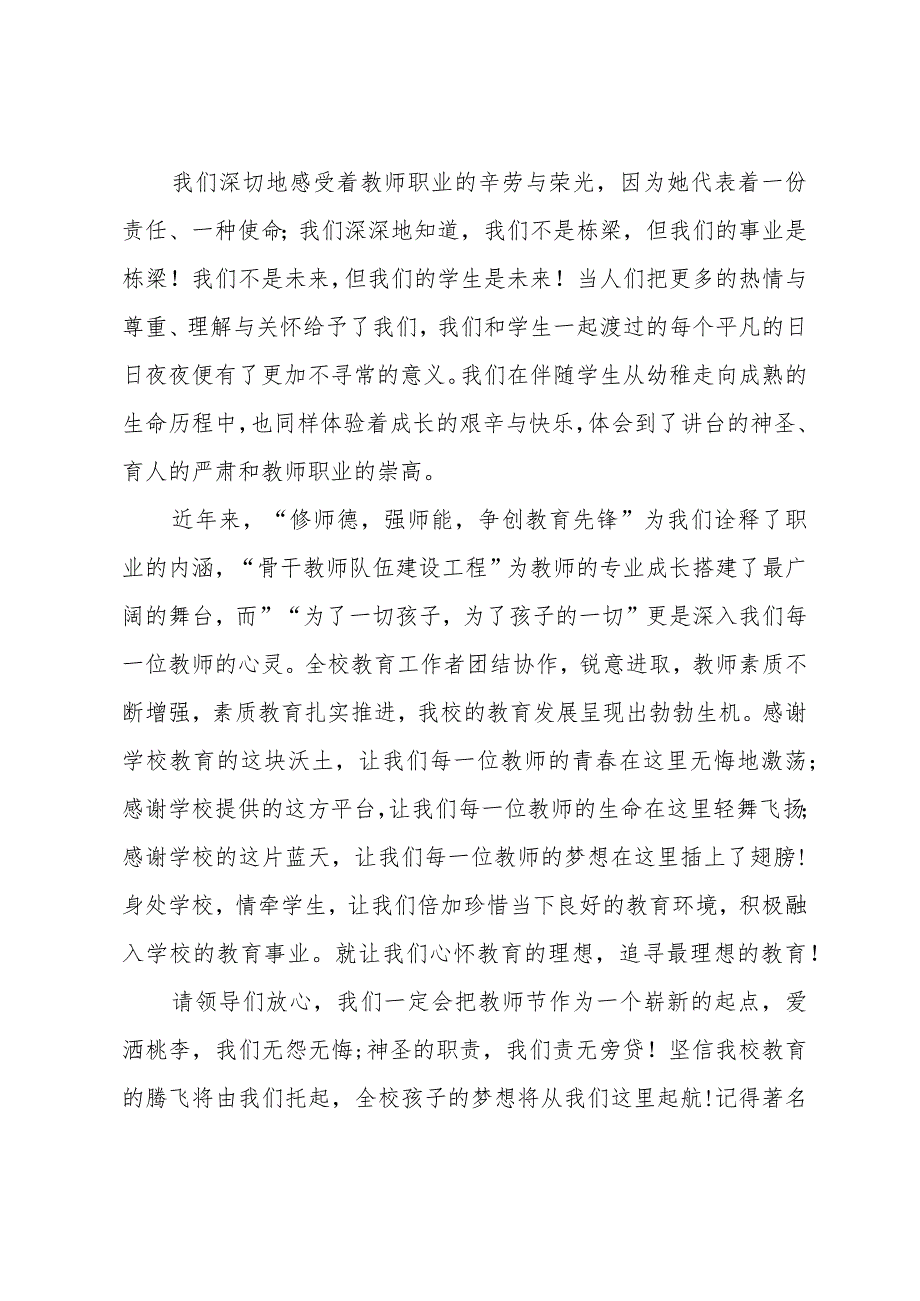 我们深切地感受着教师职业的辛劳与荣光，因为她代表着一份
责任、一种使命；我们深深地知道，我们不是栋梁，但我们的事业是
栋梁！我们不是未来，但我们的学生是未来！当人们把更多的热情与
尊重、理解与关怀给予了我们，我们和学生一起渡过的每个平凡的日
日夜夜便有了更加不寻常的意义。我们在伴随学生从幼稚走向成熟的
生命历程中，也同样体验着成长的艰辛与快乐，体会到了讲台的神圣、
育人的严肃和教师职业的崇高。
近年来，“修师德，强师能，争创教育先锋”为我们诠释了职
业的内涵，“骨干教师队伍建设工程”为教师的专业成长搭建了最广
阔的舞台，而”“为了一切孩子，为了孩子的一切”更是深入我们每
一位教师的心灵。全校教育工作者团结协作，锐意进取，教师素质不
断增强，素质教育扎实推进，我校的教育发展呈现出勃勃生机。感谢
学校教育的这块沃土，让我们每一位教师的青春在这里无悔地激荡；
感谢学校提供的这方平台，让我们每一位教师的生命在这里轻舞飞扬；
感谢学校的这片蓝天，让我们每一位教师的梦想在这里插上了翅膀！
身处学校，情牵学生，让我们倍加珍惜当下良好的教育环境，积极融
入学校的教育事业。就让我们心怀教育的理想，追寻最理想的教育！
请领导们放心，我们一定会把教师节作为一个崭新的起点，爱
洒桃李，我们无怨无悔；神圣的职责，我们责无旁贷！坚信我校教育
的腾飞将由我们托起，全校孩子的梦想将从我们这里起航！记得著名